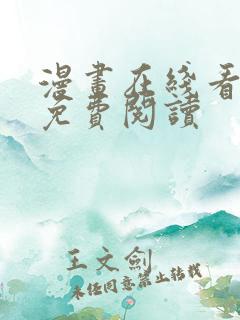 漫畫在綫看
免費閱讀
王文劍
未經同意禁止轉載